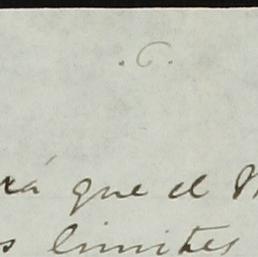 .6.
rá que el
s limites